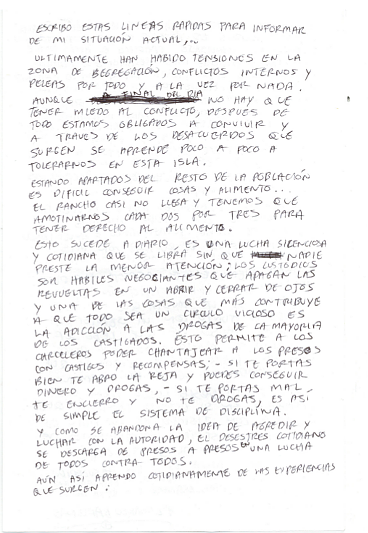 ESCRIBO ESTAS LINEAS RAPIDAS PARA INFORMAR
DE MI SITUACIÓN ACTUAL,...
ULTIMAMENTE HAN HABIDO TENSIONES EN LA
ZONA DE SEGREGACIÓN, CONFLICTOS INTERNOS Y
PELEAS POR TODO Y A LA VEZ POR NADA.
AUNQUE NO HAY QUE
TENER MIEDO AL CONFLICTO, DESPUES DE
TODO ESTAMOS OBLIGADOS A CONVIVIR Y
A TRAVES DE LOS DESACUERDOS QUE
SURGEN SE APRENDE POCO A POCO A
TOLERARNOS EN ESTA ISLA.
ESTANDO APARTADOS DEL RESTO DE LA POBLACIÓN
ES DIFICIL CONSEGUIR COSAS Y ALIMENTO...
EL RANCHO CASI NO LLEGA Y TENEMOS QUE
AMOTINARNOS CADA DOS POR TRES PARA
TENER DERECHO AL ALIMENTO.
ESTO SUCEDE A DIARIO, ES UNA LUCHA SILENCIOSA
Y COTIDIANA QUE SE LIBRA SIN QUE NADIE
PRESTE LA MENOR ATENCIÓN; LOS CUSTODIOS
SON HABILES NEGOCIANTES QUE APAGAN LAS
REVUELTAS EN UN ABRIR Y CERRAR DE OJOS
Y UNA DE LAS COSAS QUE MAS CONTRIBUYE
A QUE TODO SEA UN CIRCULO VICIOSO ES
LA ADICCIÓN A LAS DROGAS DE LA MAYORIA
DE LOS CASTIGADOS. ESTO PERMITE A LOS
CARCELEROS PODER CHANTAJEAR A LOS PRESOS
CON CASTIGOS Y RECOMPENSAS; - SI TE PORTAS
BIEN TE ABRO LA REJA Y PUEDES CONSEGUIR
DINERO Y DROGAS, - SI TE PORTAS MAL,
TE ENCIERRO Y NO TE DROGAS, ES ASI
DE SIMPLE EL SISTEMA DE DISCIPLINA.
Y COMO SE ABANDONA LA IDEA DE AGREDIR Y
LUCHAR CON LA AUTORIDAD, EL DESESTRES COTIDIANO
SE DESCARGA DE PRESOS A PRESOS EN UNA LUCHA
DE TODOS CONTRA TODOS.
AÚN ASI APRENDO COTIDIANAMENTE DE LAS EXPERIENCIAS
QUE SURGEN: